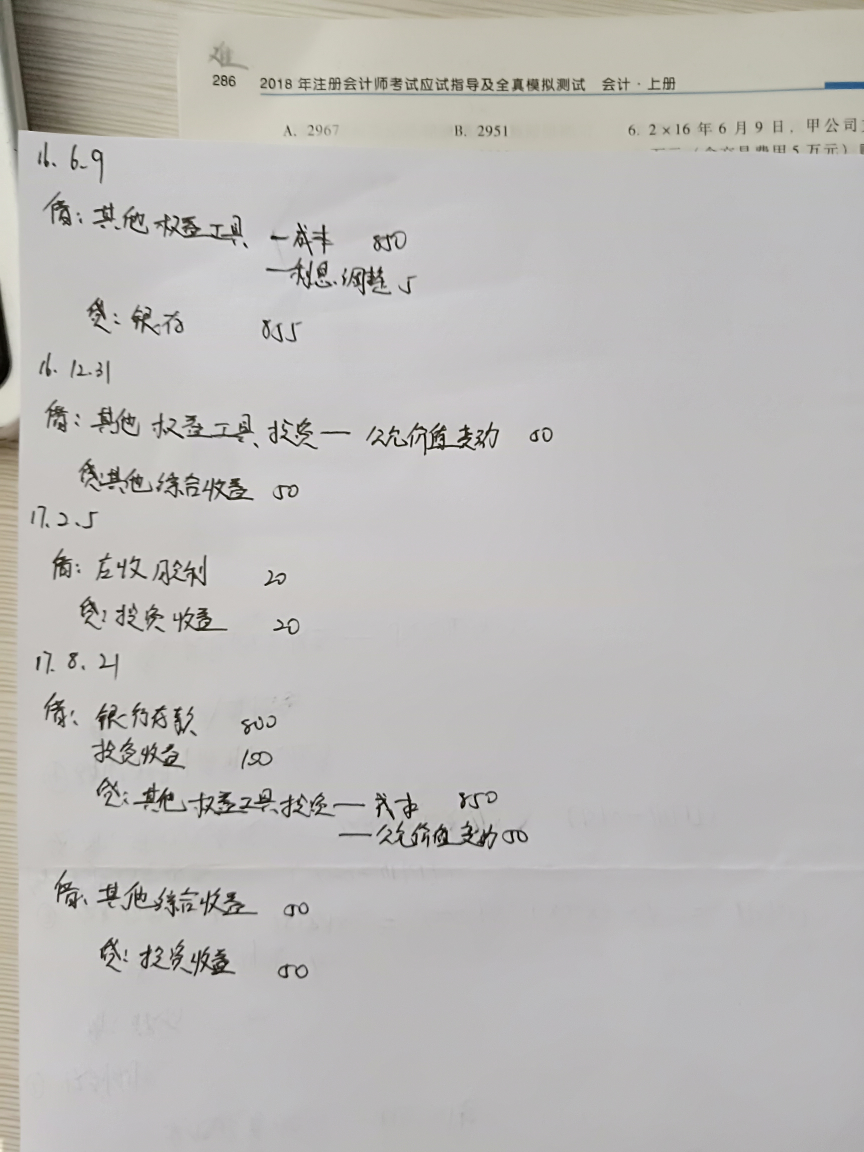 难
286 2018年注册会计师考试应试指导及全真模拟测试 会计·上册
A. 2967 B. 2951 6. 2×16年6月9日，甲公司
16. 6-9
借：其他权益工具 —成本 850
—利息调整 5
贷：银存 855
16. 12.31
借：其他权益工具投资— 公允价值变动 50
贷：其他综合收益 50
17.2.5
借：应收股利 20
贷：投资收益 20
17. 8. 21
借：银行存款 800
投资收益 100
贷：其他权益工具投资—成本 850
—公允价值变动 50
借：其他综合收益 50
贷：投资收益 50